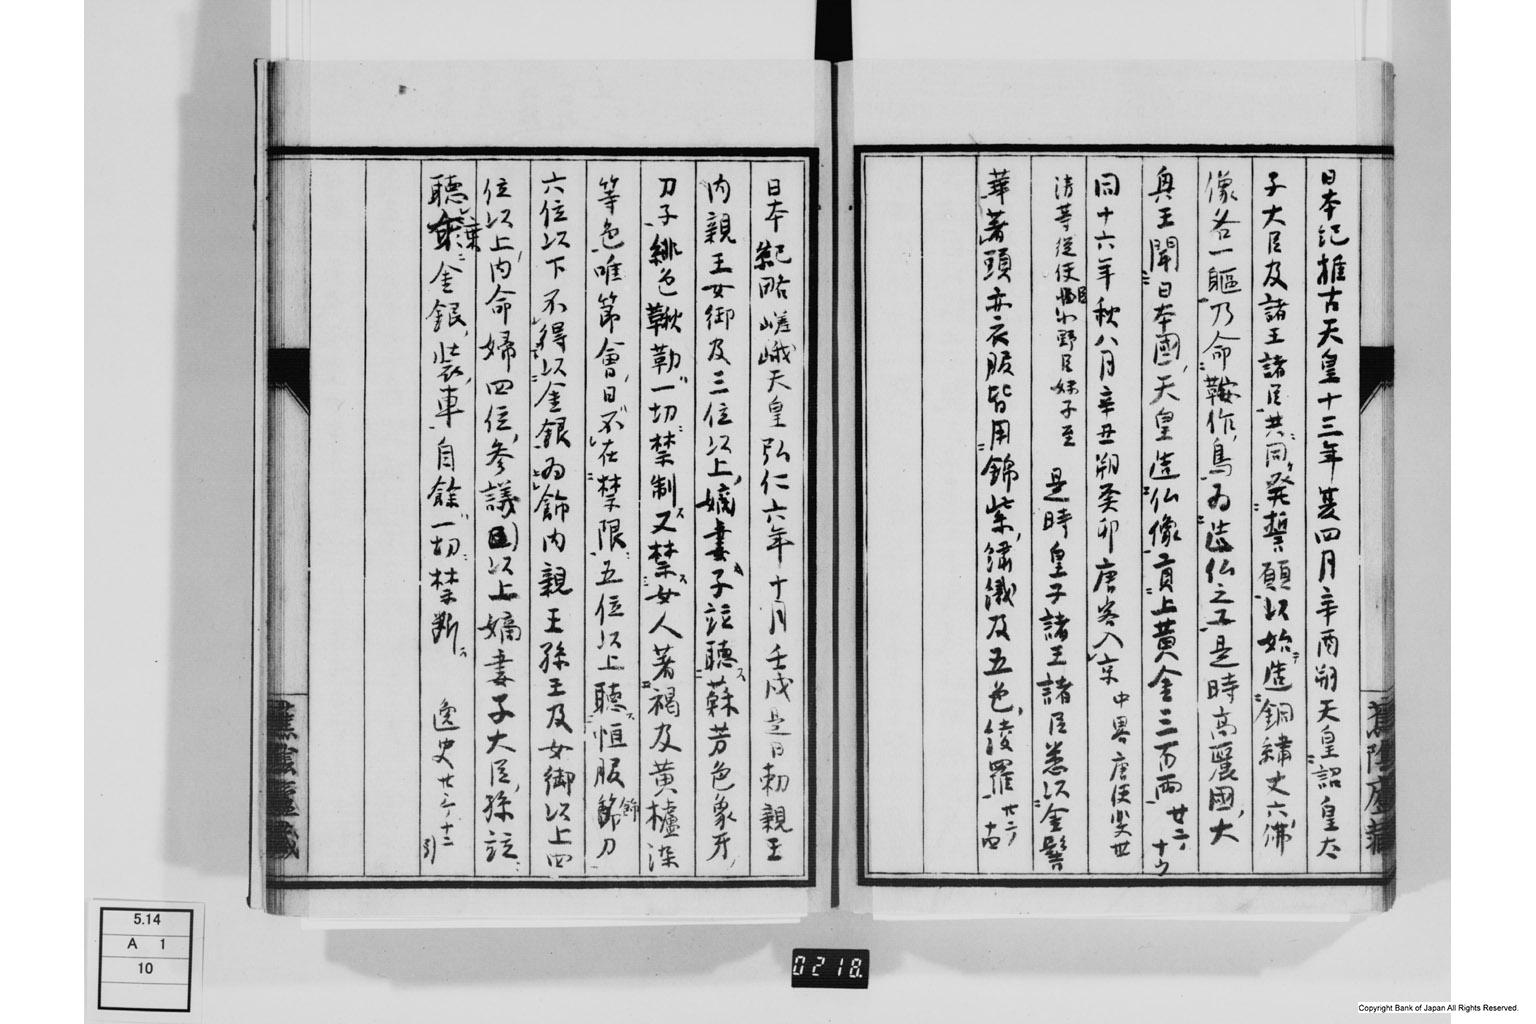 日本記推古天皇十三年夏四月辛酉朔天皇詔皇太
子大臣及諸王諸臣共同発誓願以始造銅繍丈六佛
像各一軀乃命鞍作鳥為造仏之工是時高麗國大
興王聞日本國天皇造仏像貢上黄金三百両
同十六年秋八月辛丑朔癸卯唐客入京 中畧唐使裴世
清等從使臣小野臣妹子至 是時皇子諸王諸臣悉以金髻
華著頭亦衣服皆用錦紫繍織及五色綾羅
日本紀略嵯峨天皇弘仁六年十月壬戌是日勅親王
内親王女御及三位以上嫡妻子並聴蘇芳色象牙
刀子緋色鞦勒一切禁制又禁女人著褐及黄櫨染
等色唯節會日不在禁限五位以上聴恒服餝刀
六位以下不得以金銀為餝内親王孫王及女御以上四
位以上内命婦四位参議以上嫡妻子大臣孫並
聴乗金銀装車自餘一切禁断 逸史
舊陰廬蔵
5.14
A 1
10
0218.
Copyright Bank of Japan All Rights Reserved.